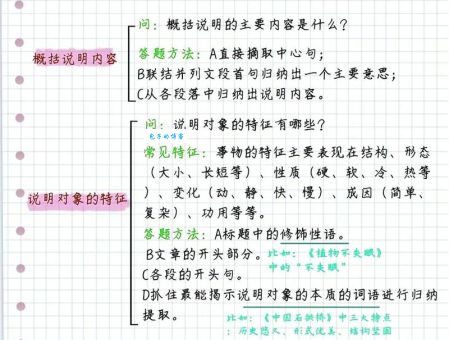 问：概括说明的主要内容是什么？
概括说明内容
答题方法：A直接摘取中心句；
B联结并列文段首句归纳出一个主要意思；
C从各段落中归纳出说明内容。
问：说明对象的特征有哪些？
常见特征：事物的特征主要表现在结构、形态
（大小、长短等）、性质（硬、软、冷、热等
）、变化（动、静、快、慢）、成因（简单、
说明对象的特征
复杂）、功用等等。
答题方法：A标题中的修饰性语。
B文章的开头部分。比如：《植物不失眠》
中的“不失眠”
C各段的开头句。
D抓住最能揭示说明对象的本质的词语进行归纳
提取。
比如：《中国石拱桥》中三大特点
：历史悠久、形式优美、结构坚固